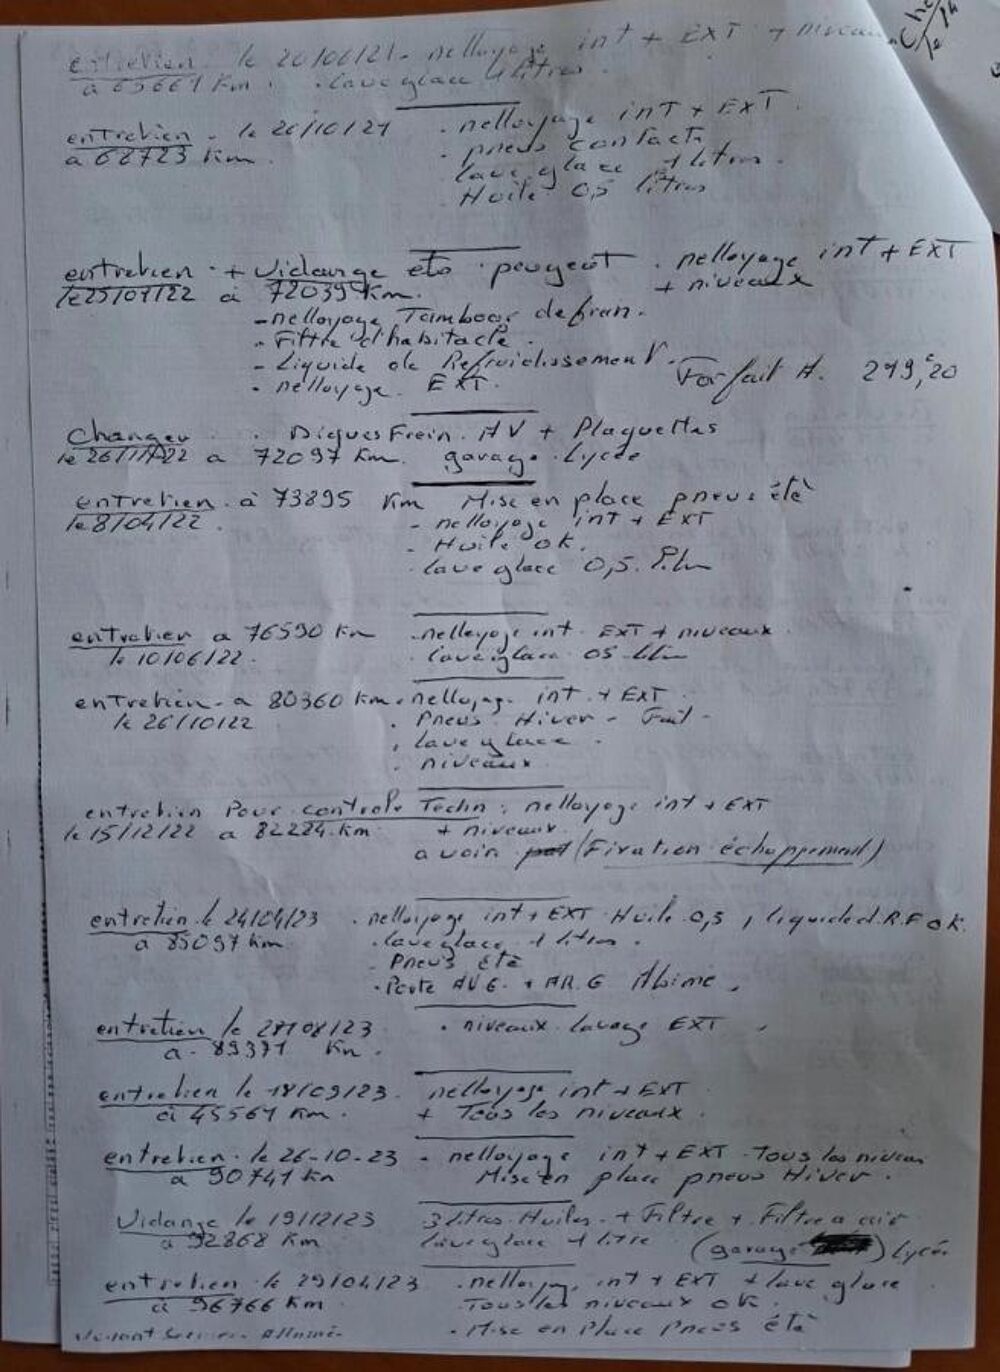 entretien le 20/06/21 - nelloyage int + EXT + niveaux
a 65661 Km. . lave glace 4 litres.
entretien - le 26/10/21 . nelloyage inT + EXT.
a 68723 Km. . pneus contacts
lave glace 1 litres.
Huile 0,5 litres
entretien + Vidange éts peugeot . nelloyage int + EXT
le 25/01/22 à 72039 Km. + niveaux
- nelloyage Tambour de frein.
- Filtre d'habitacle.
- Liquide de Refroidissement.
- nelloyage EXT. Forfait H. 219,€20
Changer . DiquesFrein. AV + Plaquettes
le 26/1/22 a 72097 Km. garage Lycée
entretien à 73895 Km Mise en place pneus été
le 8/04/22. - nelloyage int + EXT
- Huile ok.
. lave glace 0,5
entretien a 76590 Km . nelloyage int. EXT + niveaux
le 10/06/22. . lave glace 05 litre
entretien - a 80360 Km . nelloyage int + EXT
le 26/10/22 . Pneus Hiver - Fait -
. lave glace .
. niveaux.
entretien Pour controle Techn : nelloyage int + EXT
le 15/12/22 a 82224 Km + niveaux
a voir (Fixation échappement)
entretien le 24/04/23 . nelloyage int + EXT Huile 0,5, liquide d.R.F OK.
a 85097 Km. . lave glace 1 litres.
- Pneus été
. Porte AV G. + AR. G Abimé.
entretien le 28/08/23 . niveaux lavage EXT.
a - 89371 Km.
entretien le 18/09/23. nelloyage int + EXT
à 45561 Km. + Tous les niveaux.
entretien. le 26-10-23 - nelloyage int + EXT Tous les niveau
a 90741 Km Mise en place pneus Hiver.
Vidange le 19/12/23 3 litres Huiles + Filtre + Filtre a air
a 92868 Km lave glace 1 litre (garage) Lycée
entretien le 29/04/23 . nelloyage int + EXT + lave glace
a 96766 Km . Tous les niveaux ok.
Allumé - Mise en Place Pneus été